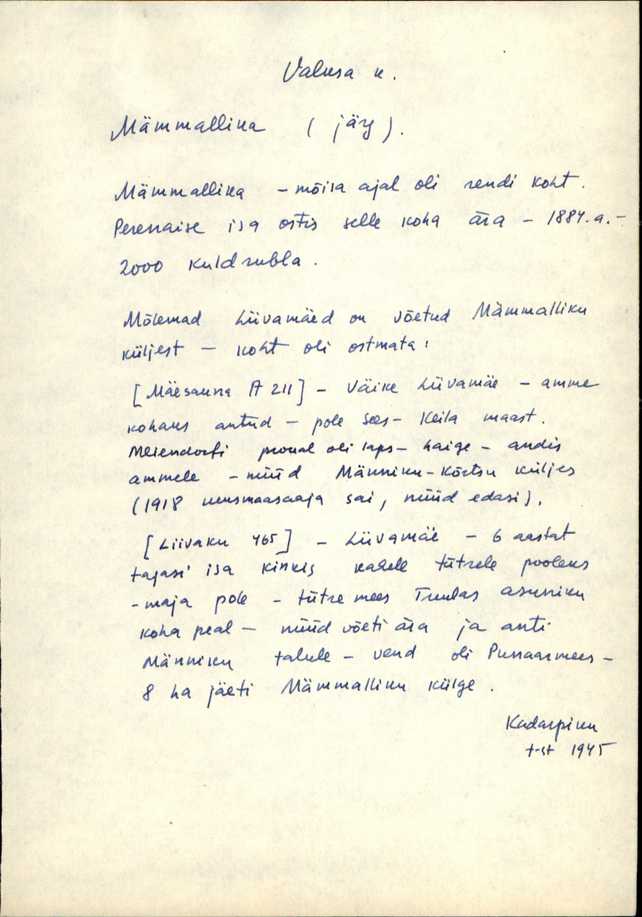 Valusa k.
Mämmallika (järg).
Mämmallika – mõisa ajal oli rendi koht.
Perenaise isa ostis selle koha ära – 1884.a. –
2000 kuldrubla.
Mõlemad Liivamäed on võetud Mämmalliku
küljest – koht oli ostmata!
[Mäesauna A 211] – Väike Liivamäe – amme
kohaks antud – pole sees – Keila maast.
Meiendorfi proual oli laps – haige – andis
ammele – nüüd Männiku-Kõrtsu küljes
(1918 uusmaasaaja sai, nüüd edasi).
[Liivaku 465] – Liivamäe – 6 aastat
tagasi isa kinkis kahele tütrele pooleks
– maja pole – tütre mees Tuulas asuniku
koha peal – nüüd võeti ära ja anti
Männiku talule – vend oli Punaarmees –
8 ha jäeti Mämmalliku külge.
Kadarpiku
1945